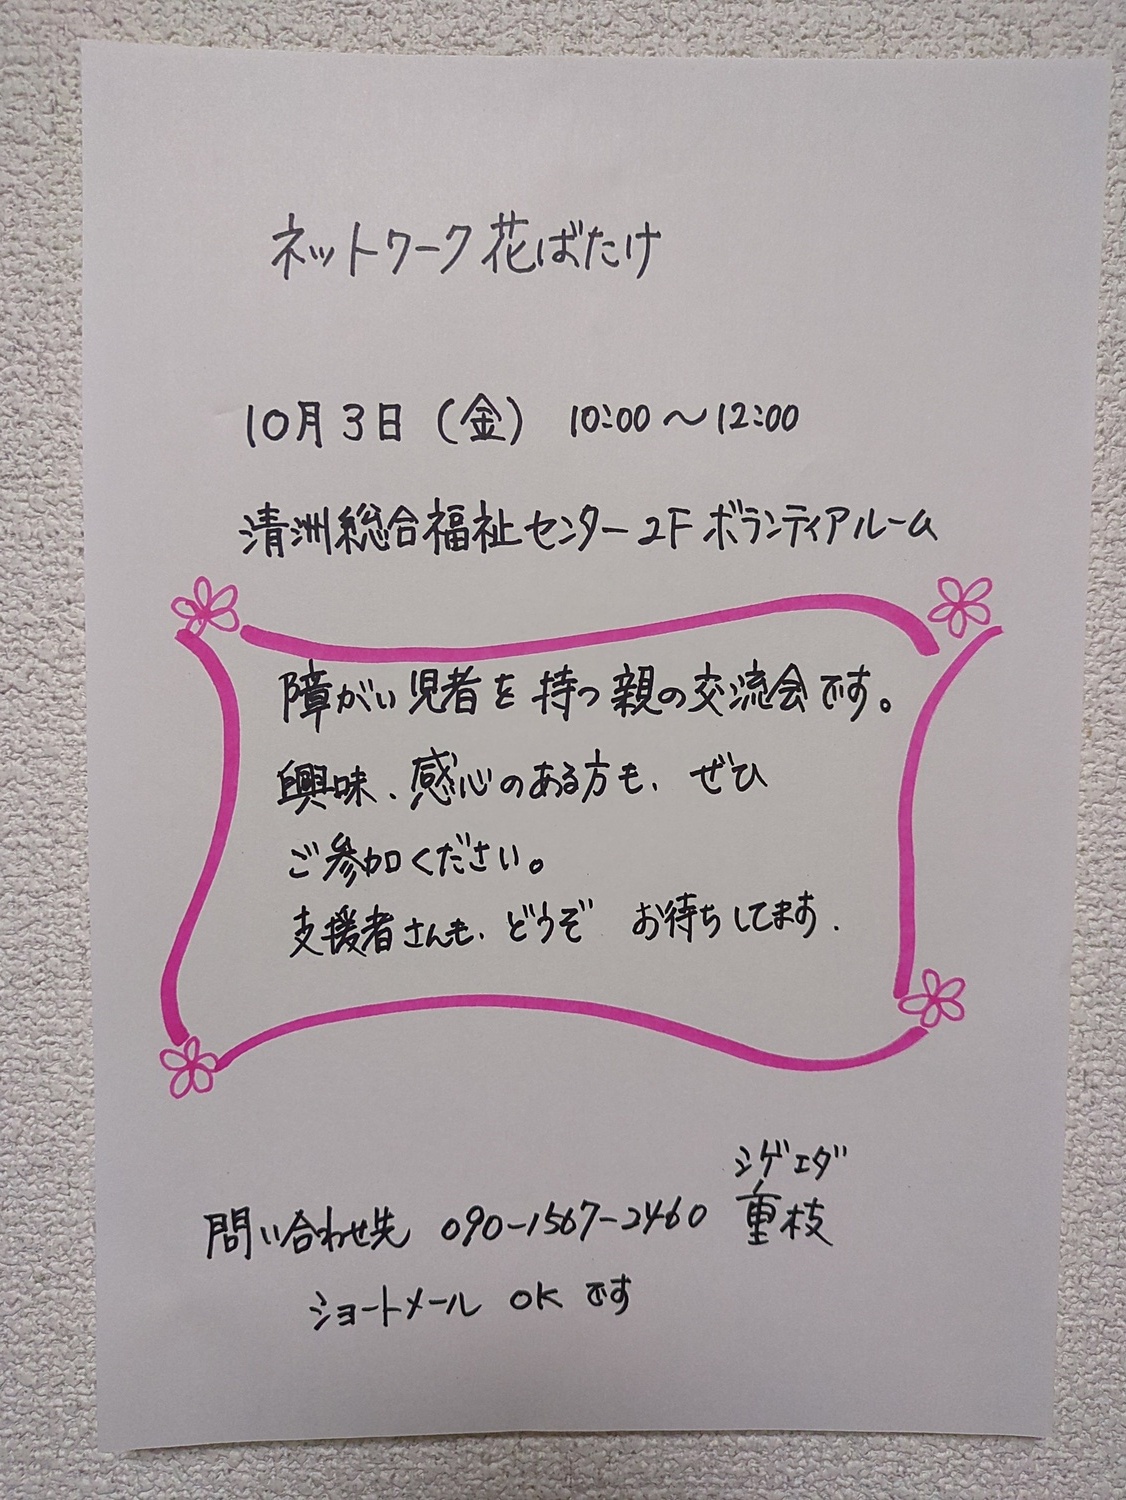 ネットワーク花ばたけ
10月3日（金） 10:00～12:00
清洲総合福祉センター2Fボランティアルーム
障がい児者を持つ親の交流会です。
興味、感心のある方も、ぜひ
ご参加ください。
支援者さんも、どうぞ お待ちしてます.
シゲエダ
問い合わせ先 090-1567-2460 重枝
ショートメール OK です